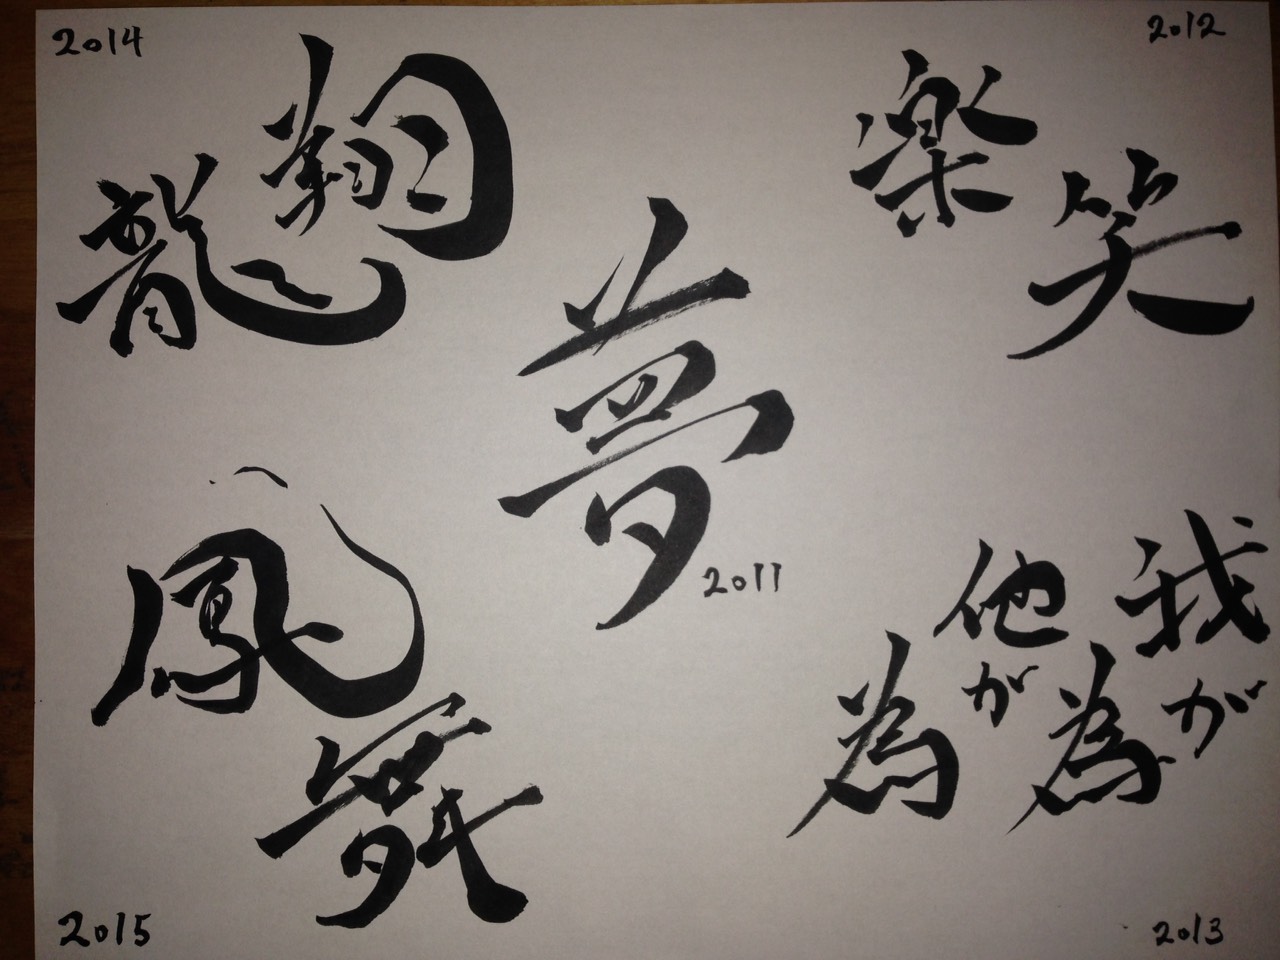 2014
龍翔
2012
楽笑
夢
2011
鳳舞
2015
我が為
他が為
2013